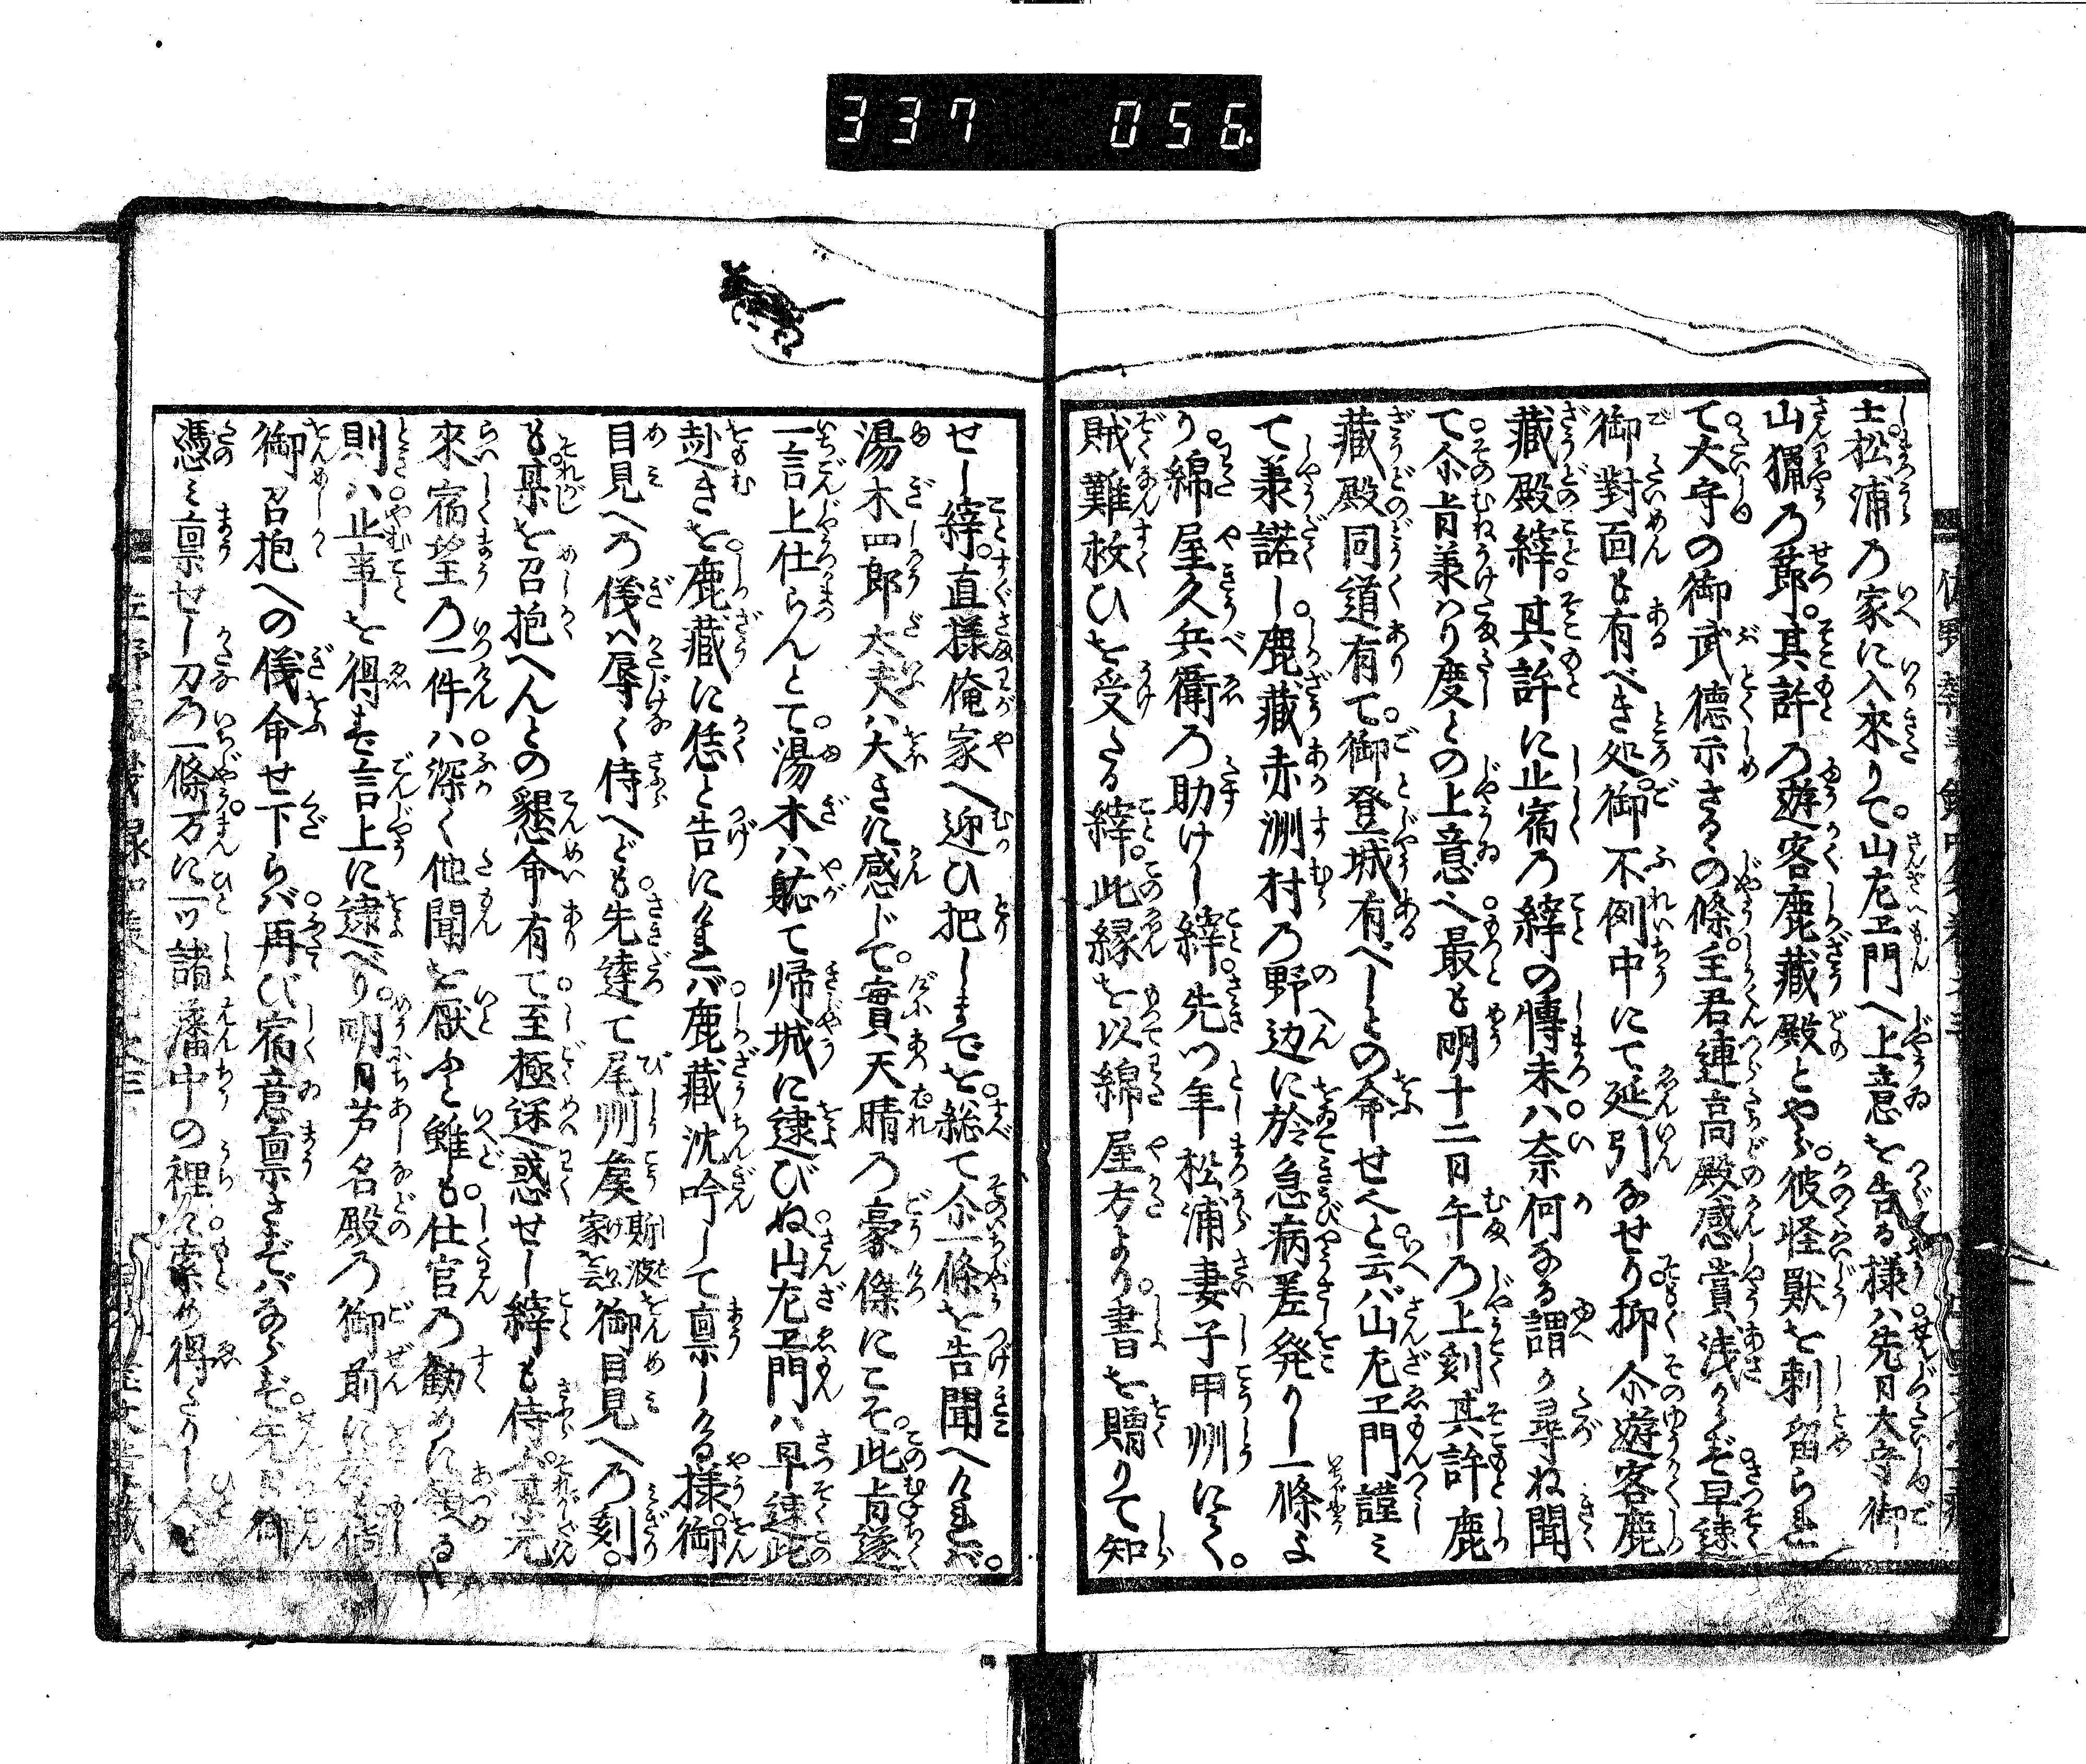 337 056
士松浦乃家に入來りて。山左衛門へ上意を告る様ハ先日大守御
山猟乃節。其許乃遊客鹿藏殿とやら。彼怪獣を刺留られ
て。大守の御武徳示さるゝの條。主君連高殿感賞浅からず早速
御對面も有べき処。御不例中にて延引なせり抑尒遊客鹿
藏殿縡。其許に止宿乃縡の慱末ハ奈何なる謂か尋ね聞
て。尒肯兼ハり度との上意へ最も明十二日午乃上刻其許鹿
藏殿同道有て。御登城有べしとの命せ也と云バ山左衛門謹ミ
て兼諾し。鹿藏赤洲村乃野辺に於急病差発りし一條よ
り。綿屋久兵衛乃助けし縡。先つ年松浦妻子甲州にて。
賊難救ひを受たる縡。此縁を以綿屋方より。書を贈りて知
せし縡。直様俺家へ迎ひ把しまでを。総て尒一條を告聞へければ。
湯木四郎太夫ハ大きに感じて。實天晴乃豪傑にこそ。此肯遂
一言上仕らんとて。湯木ハ軈て帰城に逮びぬ山左衛門ハ早速此
赴きを。鹿藏に恁と告にければ。鹿藏沈吟して禀しける様。御
目見への儀ハ辱く侍へども。先達て尾州矦斯波家を云御目見へ乃刻。
も某を召抱へんとの懇命有て。至極迷惑せし縡も侍ふ。某元
來宿望乃一件ハ。深く他聞を厭ふと雖も。仕官乃勧めに預る
則ハ。止事を得ず言上に逮べり。明日芦名殿乃御前に
御召抱への儀命せ下らバ。再び宿意禀さずバならず。
憑ミ禀せし刀乃一條。万に一ツ諸藩中の裡に索め得たりし